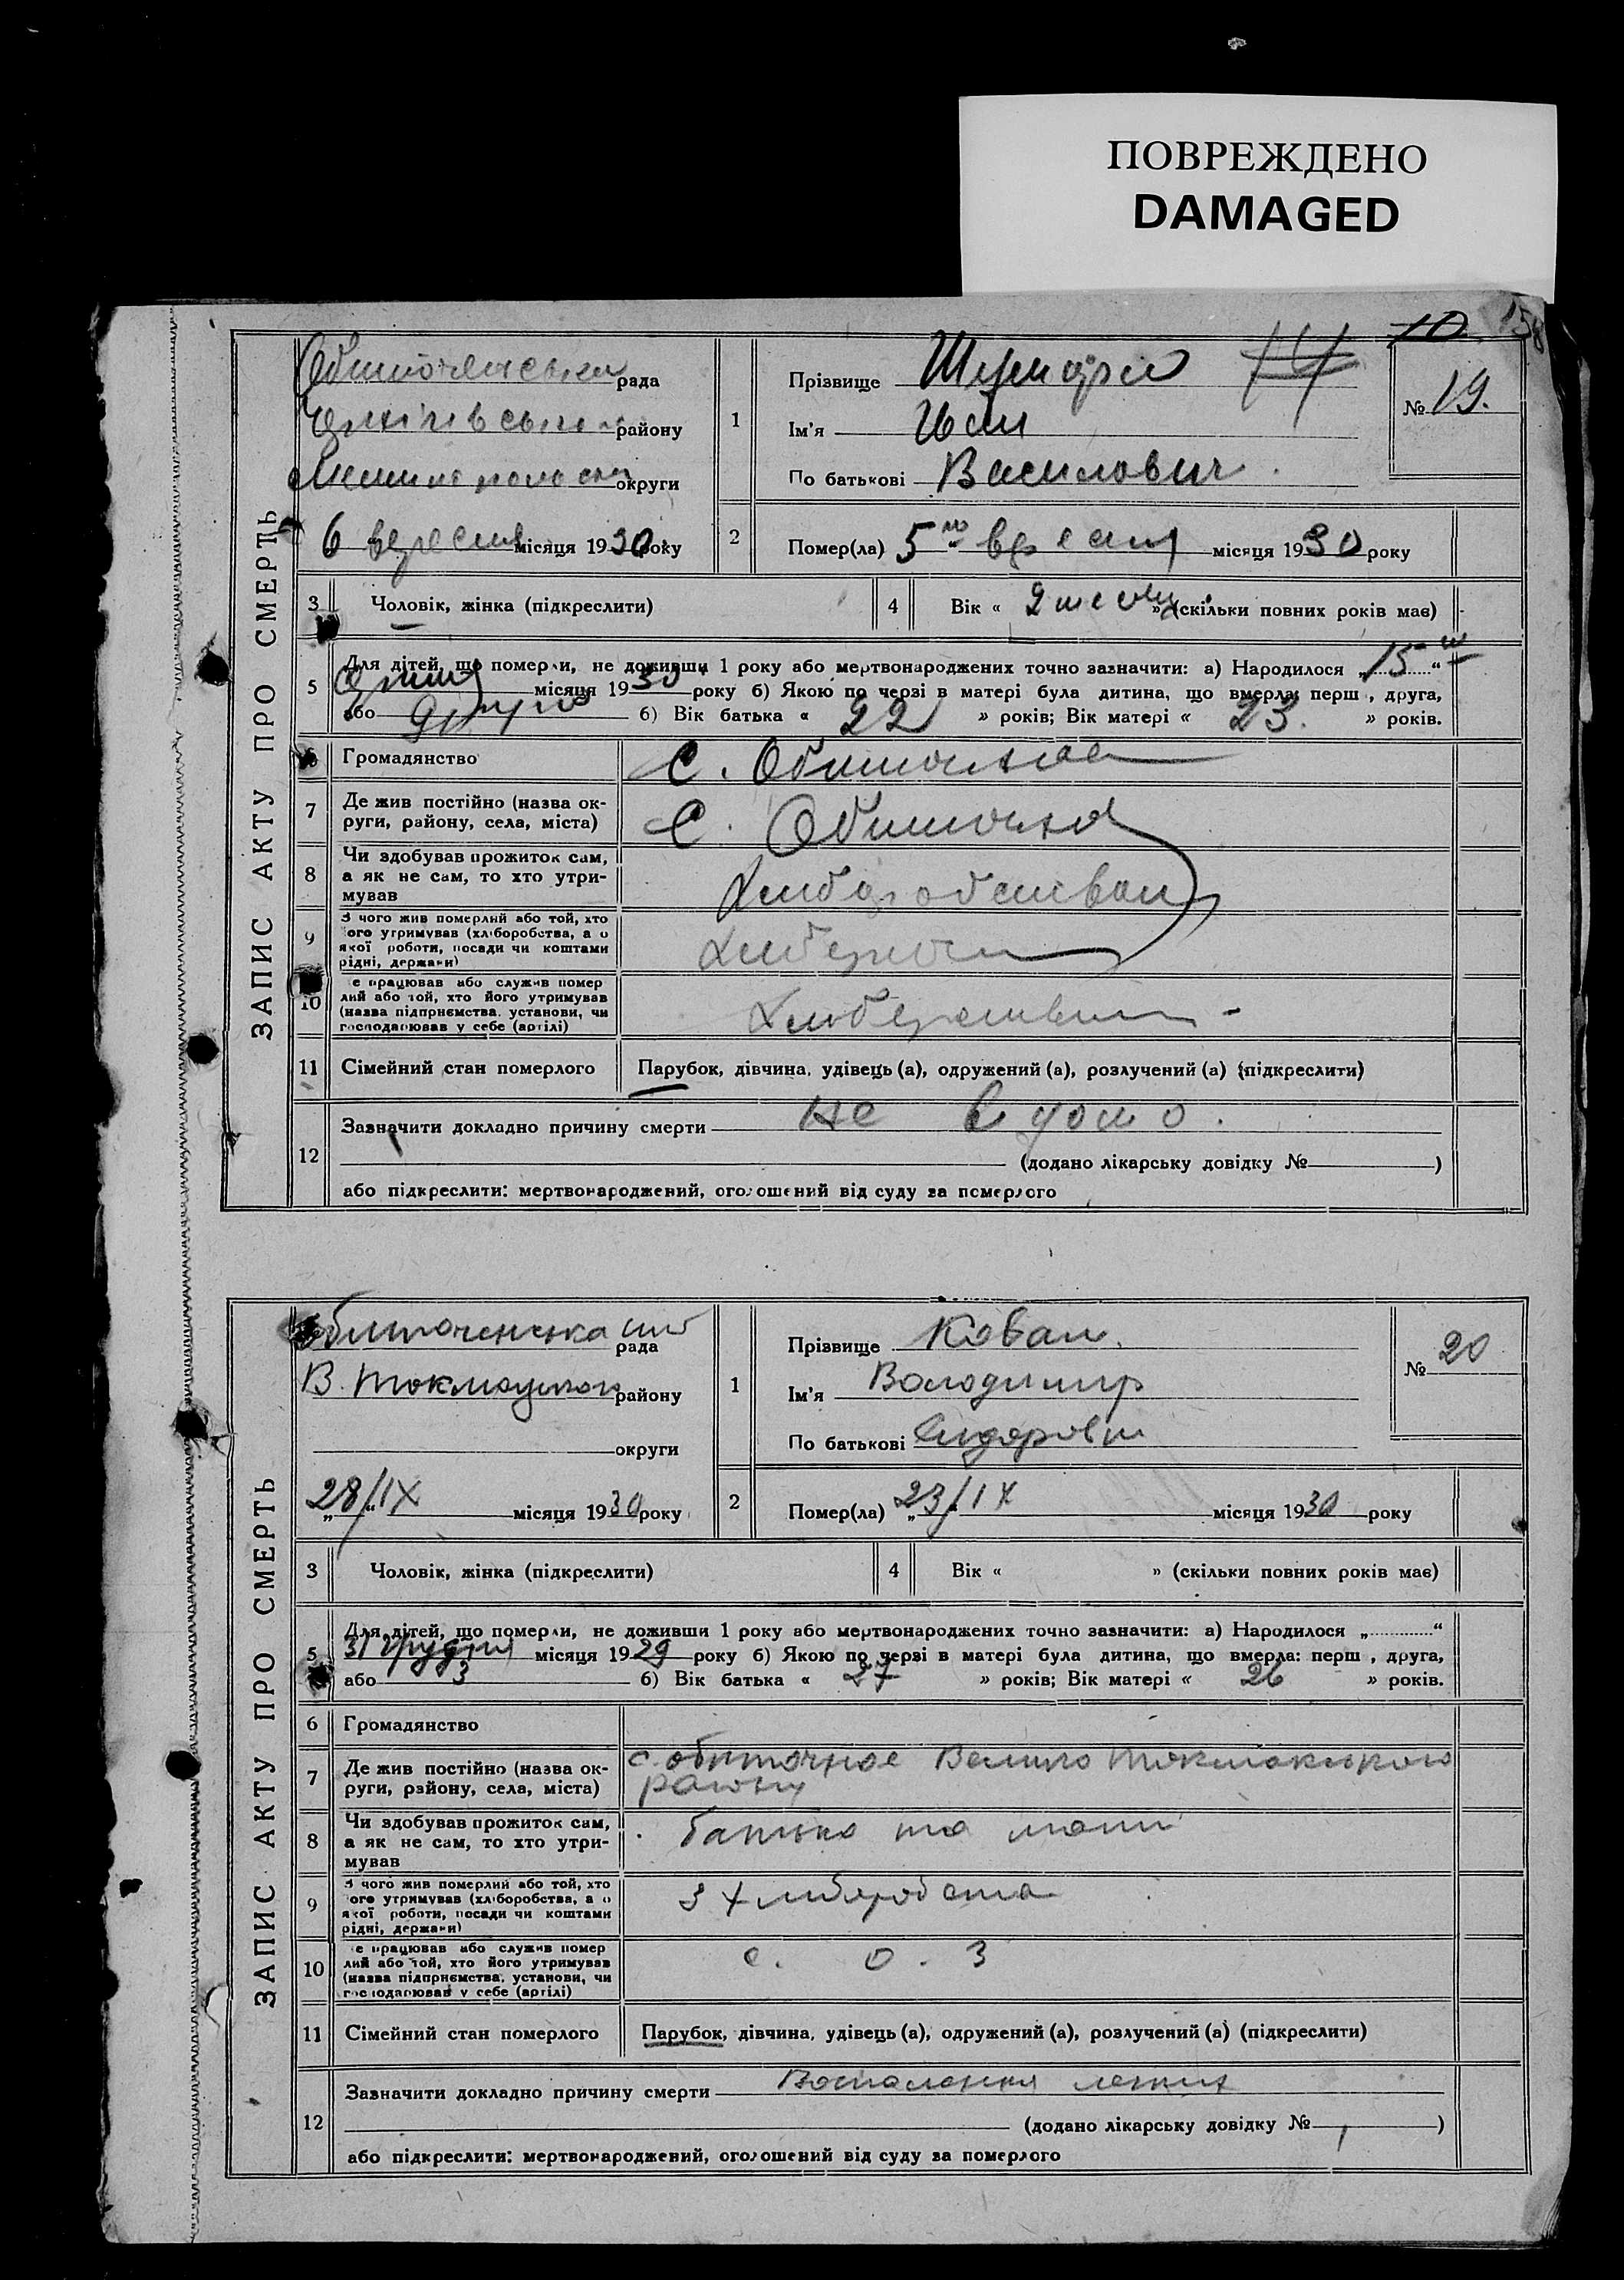 ПОВРЕЖДЕНО
DAMAGED
10 158
ЗАПИС АКТУ ПРО СМЕРТЬ
рада
району
округи
6 вересня місяця 1930 року
1
Прізвище
Ім’я
По батькові Василович
№ 19.
2
Помер(ла) 5 місяця 1930 року
3 Чоловік, жінка (підкреслити)
4 Вік « » (скільки повних років має)
5
Для дітей, що померли, не доживши 1 року або мертвонароджених точно зазначити: а) Народилося „ 15 “
місяця 1930 року б) Якою по черзі в матері була дитина, що вмерла: перш , друга,
або друга б) Вік батька « 22 » років; Вік матері « 23. » років.
6 Громадянство
7 Де жив постійно (назва ок-
руги, району, села, міста)
с. Обиточна
8 Чи здобував прожиток сам,
а як не сам, то хто утри-
мував
9 З чого жив померлий або той, хто
ого утримував (хліборобства, а о
якої роботи, посади чи коштами
рідні, держави)
10 е працював або служив помер
лий або той, хто його утримував
(назва підприємства, установи, чи
господарював у себе (артілі)
11 Сімейний стан померлого Парубок, дівчина, удівець (а), одружений (а), розлучений (а) (підкреслити)
12
Зазначити докладно причину смерти не відомо.
(додано лікарську довідку № )
або підкреслити: мертвонароджений, оголошений від суду за померлого
ЗАПИС АКТУ ПРО СМЕРТЬ
Обиточенська рада
В. Токмацького району
округи
28/IX місяця 1930 року
1
Прізвище Коваль
Ім’я Володимир
По батькові Сидорович
№ 20
2
Помер(ла) „ 23/IX місяця 1930 року
3 Чоловік, жінка (підкреслити)
4 Вік « » (скільки повних років має)
5
Для дітей, що померли, не доживши 1 року або мертвонароджених точно зазначити: а) Народилося „ “
31 грудня місяця 1929 року б) Якою по черзі в матері була дитина, що вмерла: перш , друга,
або 3 б) Вік батька « 27 » років; Вік матері « 26 » років.
6 Громадянство
7 Де жив постійно (назва ок-
руги, району, села, міста)
с. обиточное Велико Токмакського
району
8 Чи здобував прожиток сам,
а як не сам, то хто утри-
мував
батько та мати
9 З чого жив померлий або той, хто
ого утримував (хліборобства, а о
якої роботи, посади чи коштами
рідні, держави)
З хліборобства
10 е працював або служив помер
лий або той, хто його утримував
(назва підприємства, установи, чи
господарював у себе (артілі)
с. о. з
11 Сімейний стан померлого Парубок, дівчина, удівець (а), одружений (а), розлучений (а) (підкреслити)
12
Зазначити докладно причину смерти Воспаления легких
(додано лікарську довідку № )
або підкреслити: мертвонароджений, оголошений від суду за померлого